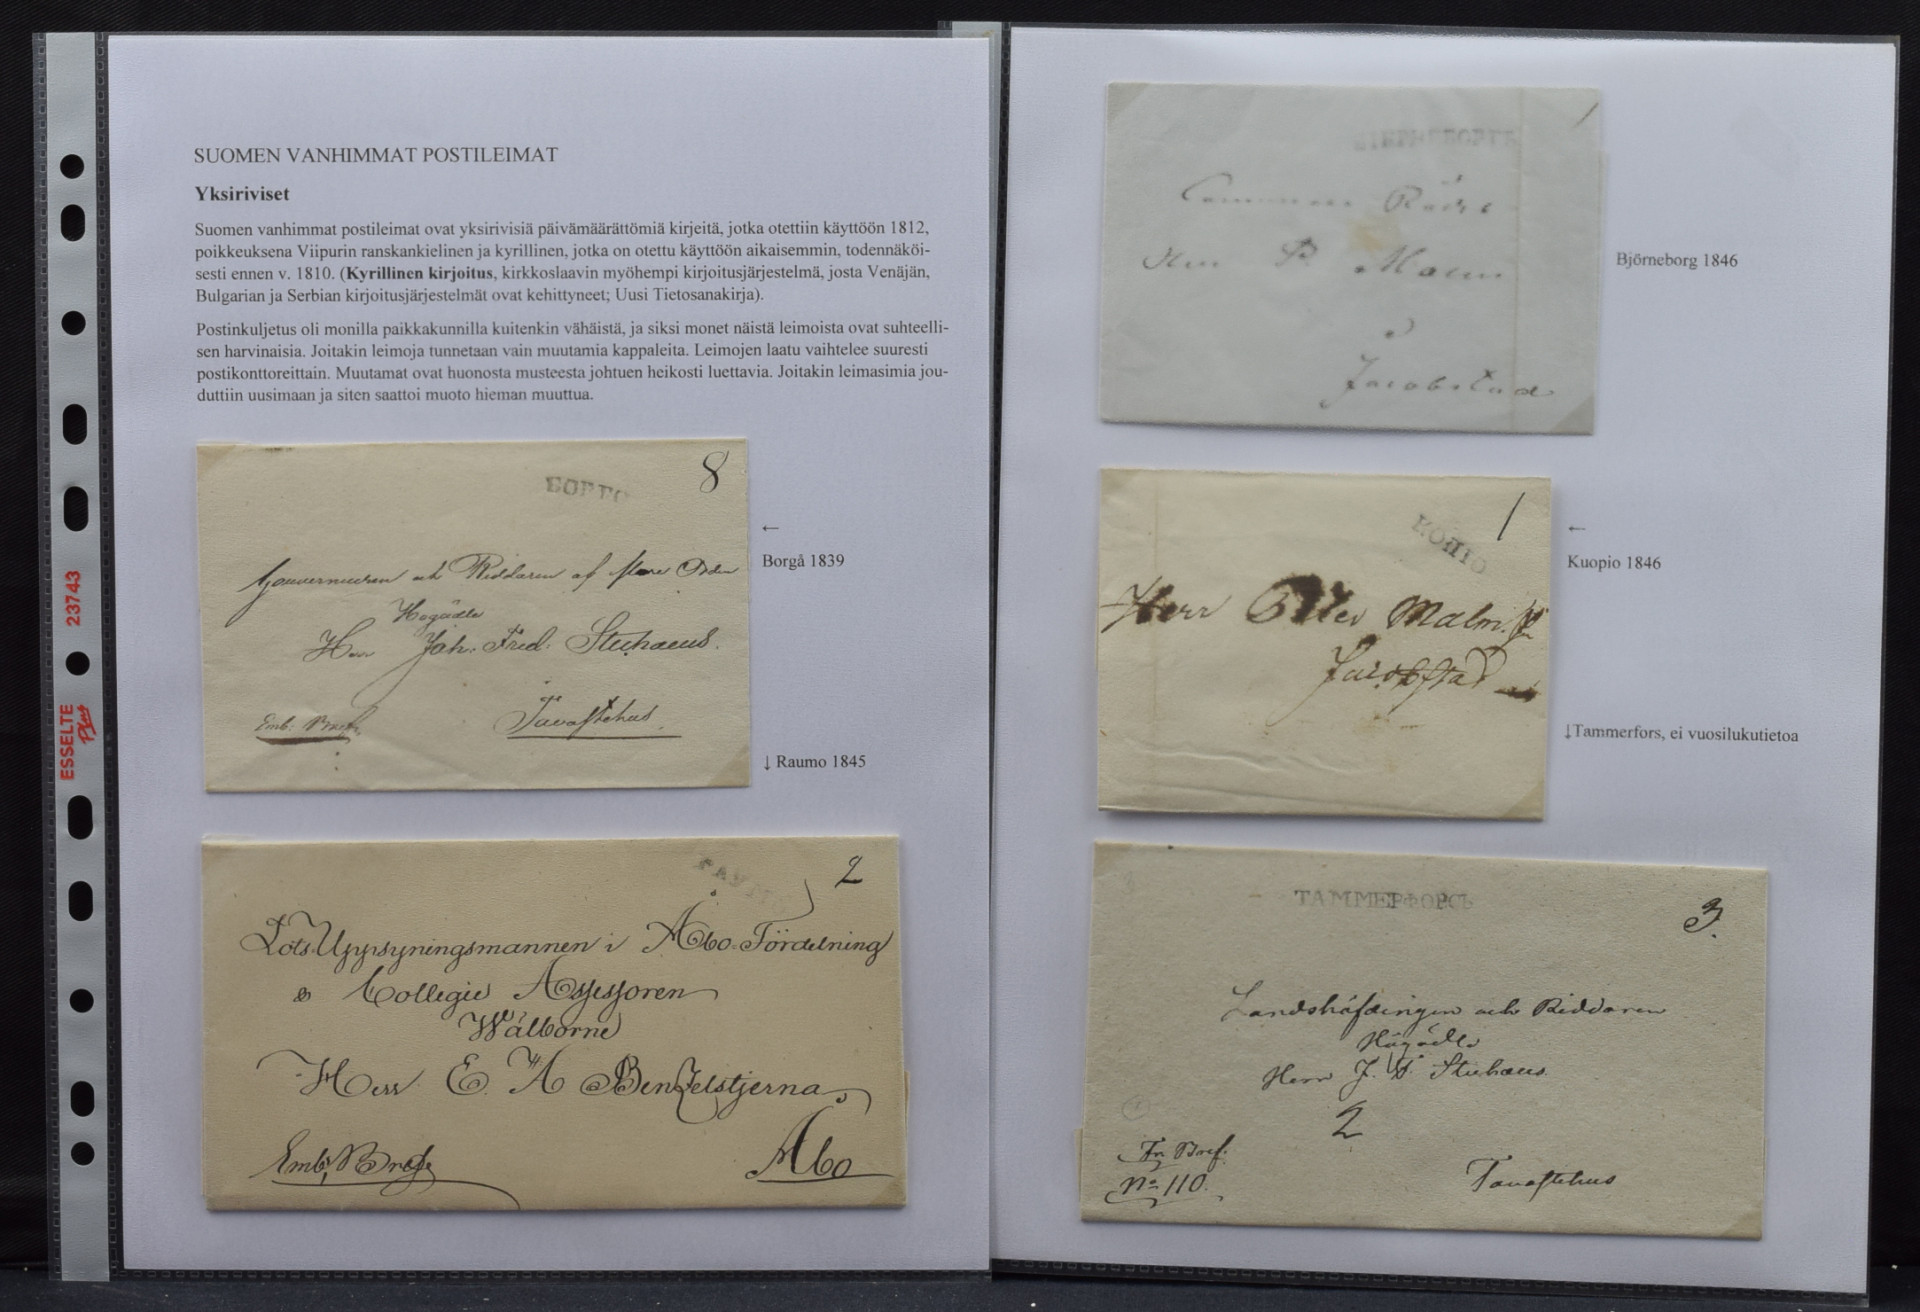 SUOMEN VANHIMMAT POSTILEIMAT
Yksiriviset
Suomen vanhimmat postileimat ovat yksirivisiä päivämäärättömiä kirjeitä, jotka otettiin käyttöön 1812,
poikkeuksena Viipurin ranskankielinen ja kyrillinen, jotka on otettu käyttöön aikaisemmin, todennäköi-
sesti ennen v. 1810. (Kyrillinen kirjoitus, kirkkoslaavin myöhempi kirjoitusjärjestelmä, josta Venäjän,
Bulgarian ja Serbian kirjoitusjärjestelmät ovat kehittyneet; Uusi Tietosanakirja).
Postinkuljetus oli monilla paikkakunnilla kuitenkin vähäistä, ja siksi monet näistä leimoista ovat suhteelli-
sen harvinaisia. Joitakin leimoja tunnetaan vain muutamia kappaleita. Leimojen laatu vaihtelee suuresti
postikonttoreittain. Muutamat ovat huonosta musteesta johtuen heikosti luettavia. Joitakin leimasimia jou-
duttiin uusimaan ja siten saattoi muoto hieman muuttua.
БОРГО
8
Gouverneuren och Riddaren af flere Orden
Högädle
Herr Joh. Fred. Stichaeus.
Tavastehus.
Emb. Bref
←
Borgå 1839
↓ Raumo 1845
2
Lots Uppsyningsmannen i Åbo Fördelning
Collegie Assessoren
Wälborne
Herr E. A Benzelstjerna
Emb. Bref
Åbo
ESSELTE Plus 23743
Råd
P. Malm
Jacobstad
Björneborg 1846
КОПІО
1
Herr Otter Malm
Jacobstad
←
Kuopio 1846
↓Tammerfors, ei vuosilukutietoa
ТАММЕРФОРСЪ
3.
Landshöfdingen och Riddaren
Högädle
Herr J. F. Stichaeus
2
Fr. Bref.
No 110.
Tavastehus